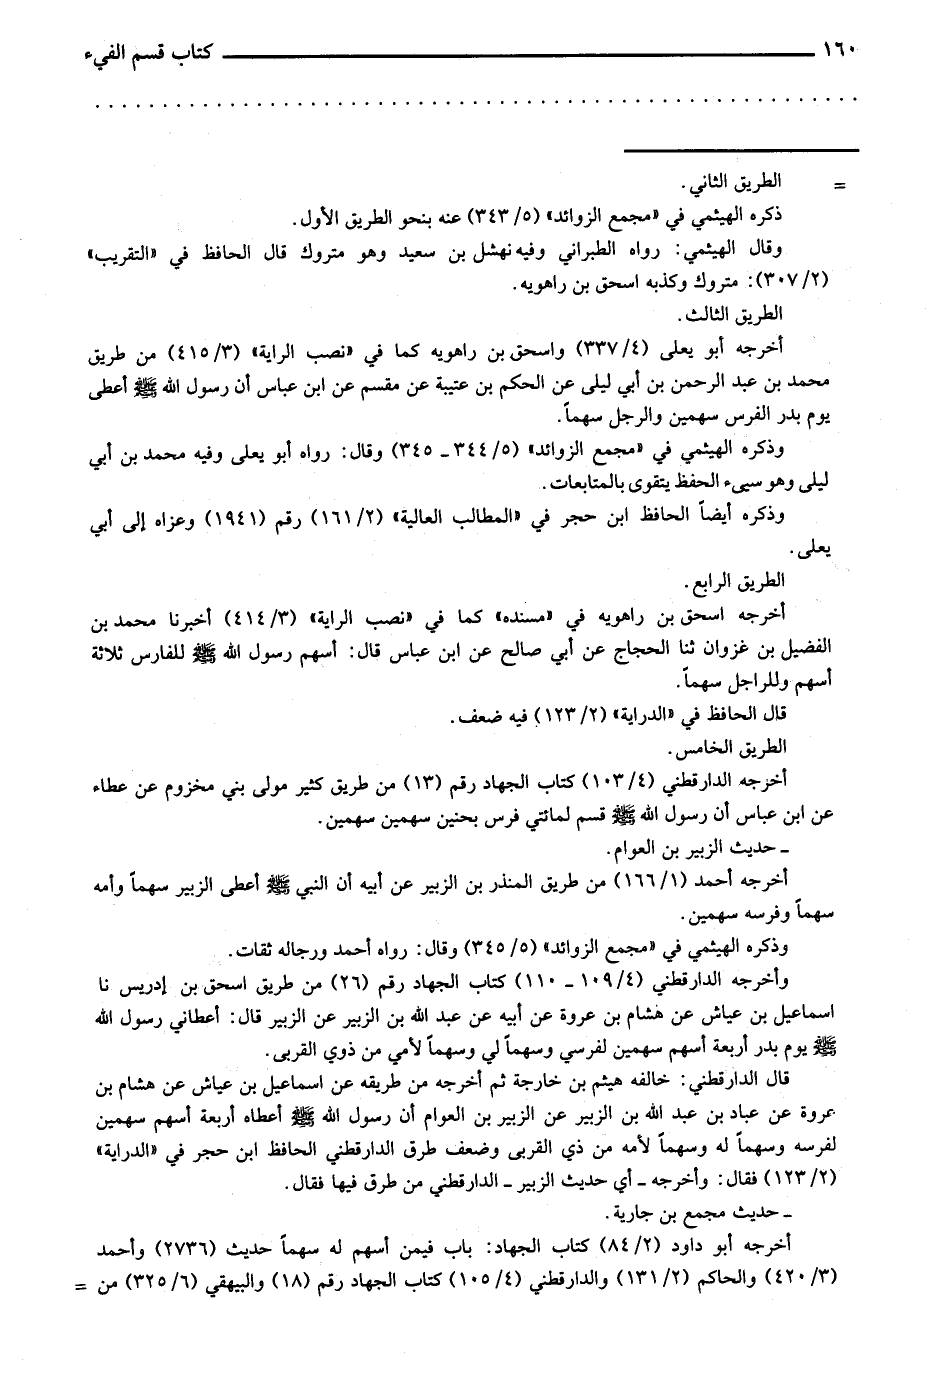 ١٦٠ كتاب قسم الفيء
= الطريق الثاني.
ذكره الهيثمي في «مجمع الزوائد» (٣٤٣/٥) عنه بنحو الطريق الأول.
وقال الهيثمي: رواه الطبراني وفيه نهشل بن سعيد وهو متروك قال الحافظ في «التقريب»
(٣٠٧/٢): متروك وكذبه اسحق بن راهويه.
الطريق الثالث.
أخرجه أبو يعلى (٣٣٧/٤) واسحق بن راهويه كما في «نصب الراية» (٤١٥/٣) من طريق
محمد بن عبد الرحمن بن أبي ليلى عن الحكم بن عتيبة عن مقسم عن ابن عباس أن رسول الله ﷺ أعطى
يوم بدر الفرس سهمين والرجل سهماً.
وذكره الهيثمي في «مجمع الزوائد» (٣٤٤/٥ ـ ٣٤٥) وقال: رواه أبو يعلى وفيه محمد بن أبي
ليلى وهو سيىء الحفظ يتقوى بالمتابعات.
وذكره أيضاً الحافظ ابن حجر في «المطالب العالية» (١٦١/٢) رقم (١٩٤١) وعزاه إلى أبي
يعلى.
الطريق الرابع.
أخرجه اسحق بن راهويه في «مسنده» كما في «نصب الراية» (٤١٤/٣) أخبرنا محمد بن
الفضيل بن غزوان ثنا الحجاج عن أبي صالح عن ابن عباس قال: أسهم رسول الله ﷺ للفارس ثلاثة
أسهم وللراجل سهماً.
قال الحافظ في «الدراية» (١٢٣/٢) فيه ضعف.
الطريق الخامس.
أخرجه الدارقطني (١٠٣/٤) كتاب الجهاد رقم (١٣) من طريق كثير مولى بني مخزوم عن عطاء
عن ابن عباس أن رسول الله ﷺ قسم لمائتي فرس بحنين سهمين سهمين.
ـ حديث الزبير بن العوام.
أخرجه أحمد (١٦٦/١) من طريق المنذر بن الزبير عن أبيه أن النبي ﷺ أعطى الزبير سهماً وأمه
سهماً وفرسه سهمين.
وذكره الهيثمي في «مجمع الزوائد» (٣٤٥/٥) وقال: رواه أحمد ورجاله ثقات.
وأخرجه الدارقطني (١٠٩/٤ ـ ١١٠) كتاب الجهاد رقم (٢٦) من طريق اسحق بن إدريس نا
اسماعيل بن عياش عن هشام بن عروة عن أبيه عن عبد الله بن الزبير عن الزبير قال: أعطاني رسول الله
ﷺ يوم بدر أربعة أسهم سهمين لفرسي وسهماً لي وسهماً لأمي من ذوي القربى.
قال الدارقطني: خالفه هيثم بن خارجة ثم أخرجه من طريقه عن اسماعيل بن عياش عن هشام بن
عروة عن عباد بن عبد الله بن الزبير عن الزبير بن العوام أن رسول الله ﷺ أعطاه أربعة أسهم سهمين
لفرسه وسهماً له وسهماً لأمه من ذي القربى وضعف طرق الدارقطني الحافظ ابن حجر في «الدراية»
(١٢٣/٢) فقال: وأخرجه ـ أي حديث الزبير ـ الدارقطني من طرق فيها فقال.
ـ حديث مجمع بن جارية.
أخرجه أبو داود (٨٤/٢) كتاب الجهاد: باب فيمن أسهم له سهماً حديث (٢٧٣٦) وأحمد
(٤٢٠/٣) والحاكم (١٣١/٢) والدارقطني (١٠٥/٤) كتاب الجهاد رقم (١٨) والبيهقي (٣٢٥/٦) من =